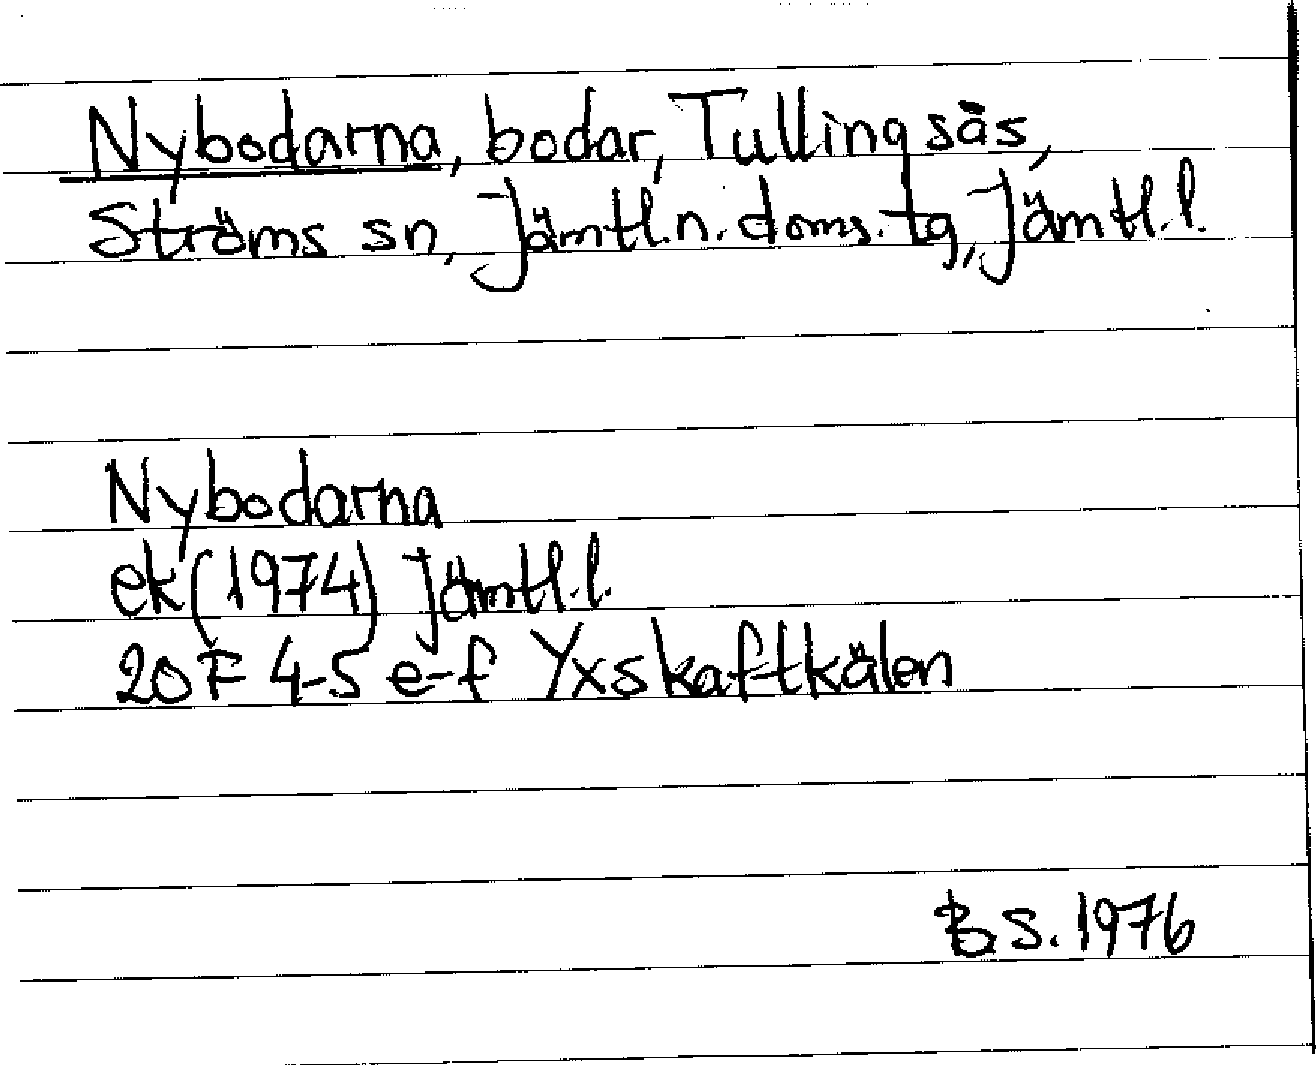 Nybodarna, bodar, Tullingsås,
Ströms sn, Jämtl.n. doms. tg, Jämtl.l.
Nybodarna
ek (1974) Jämtl.l.
20F 4-5 e-f Yxskaftkälen
B.S. 1976